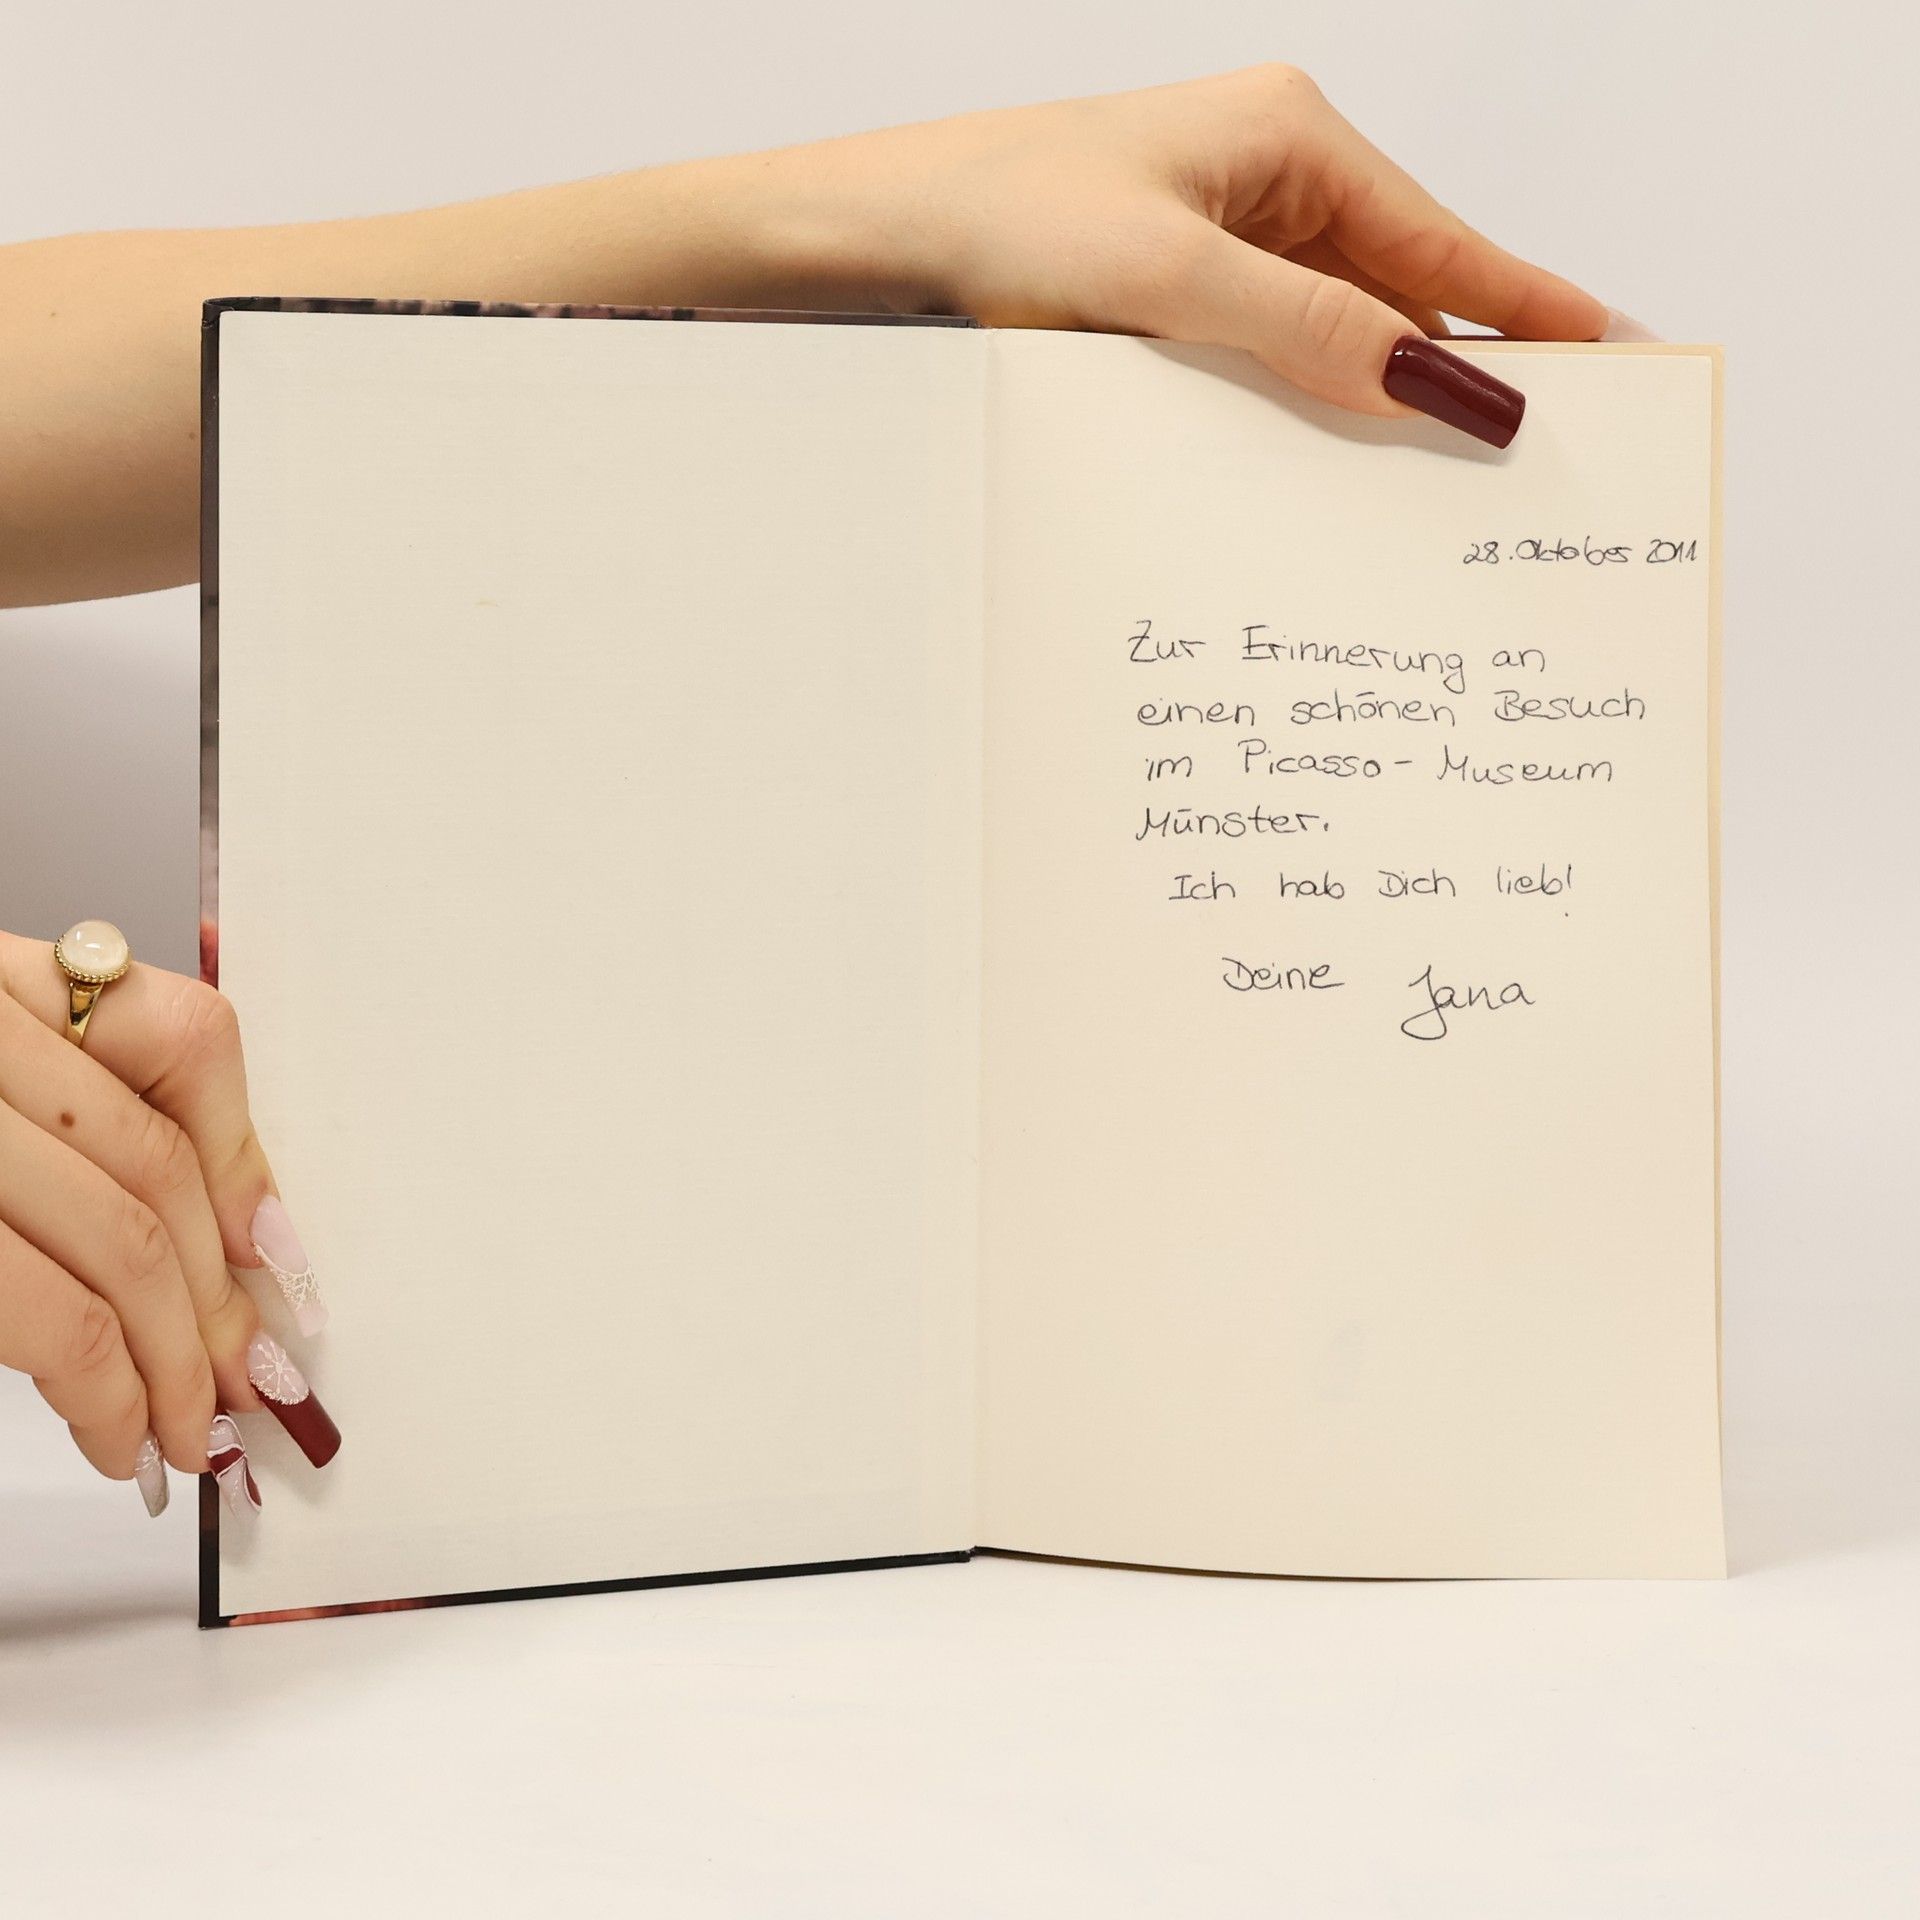 28. Oktober 2011
Zur Erinnerung an
einen schönen Besuch
im Picasso-Museum
Münster.
Ich hab Dich lieb!
Deine Jana